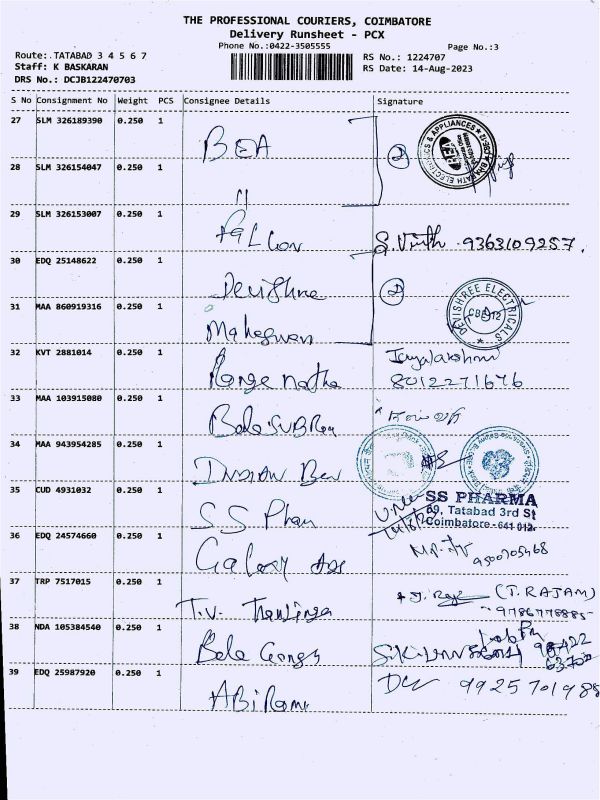 THE PROFESSIONAL COURIERS, COIMBATORE
Delivery Runsheet - PCX
Phone No.:0422-3505555
Page No.:3
Route:. TATABAD 3 4 5 6 7
RS No.: 1224707
Staff: K BASKARAN
RS Date: 14-Aug-2023
DRS No.: DCJB122470703
S No Consignment No Weight PCS Consignee Details Signature
27 SLM 326189390 0.250 1 BEA
28 SLM 326154047 0.250 1 "
29 SLM 326153007 0.250 1 9363109257.
30 EDQ 25148622 0.250 1 Devishree
DEVISHREE ELECTRICALS
CBE-12
31 MAA 860919316 0.250 1 Maheswari
32 KVT 2881014 0.250 1 Range natha Jayalakshmi
8012271676
33 MAA 103915080 0.250 1
34 MAA 943954285 0.250 1 Indian
35 CUD 4931032 0.250 1 S S Phar
SS PHARMA
69, Tatabad 3rd St
Coimbatore - 641 012.
36 EDQ 24574660 0.250 1 Galaxy
9500705468
37 TRP 7517015 0.250 1 T.V. (T. RAJAM)
9786778885
38 NDA 105384540 0.250 1 Bala
39 EDQ 25987920 0.250 1 ABiRami 9925701988